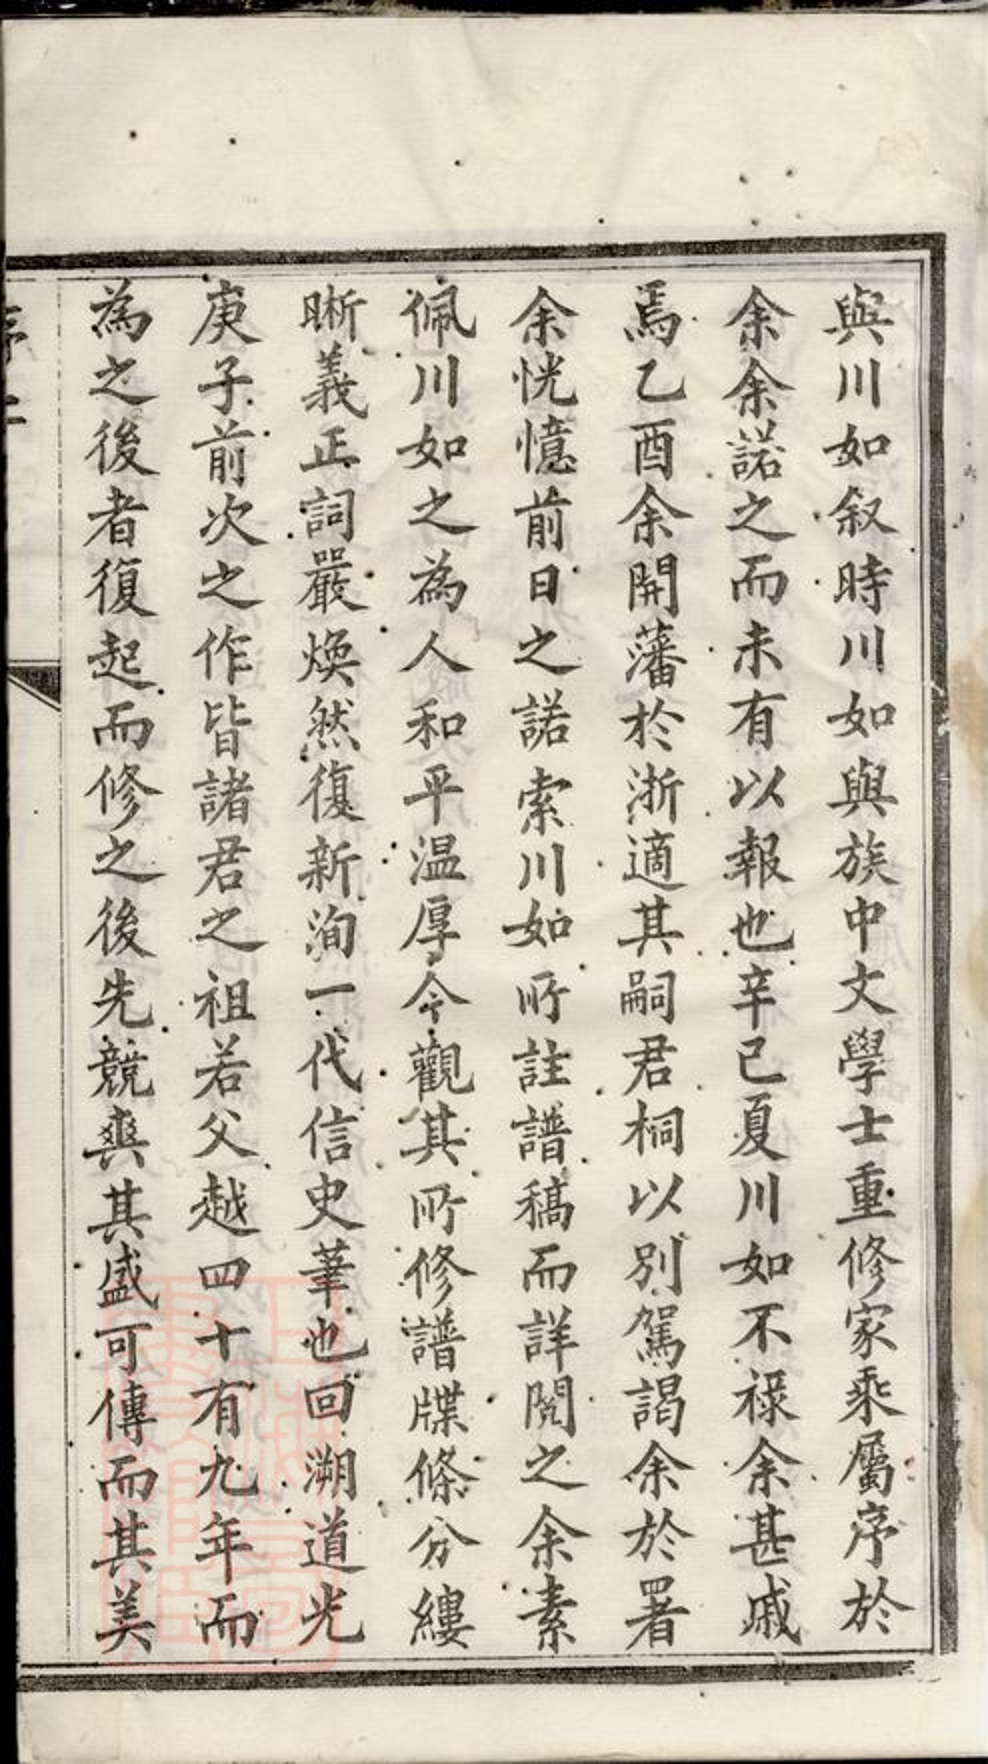 與川如叙時川如與族中文學士重修家乘屬序於
余余諾之而未有以報也辛巳夏川如不祿余甚戚
焉乙酉余開藩於浙適其嗣君桐以別駕謁余於署
余恍憶前日之諾索川如所註譜稿而詳閱之余素
佩川如之為人和平温厚今觀其所修譜牒條分縷
晰義正詞嚴煥然復新洵一代信史筆也回溯道光
庚子前次之作皆諸君之祖若父越四十有九年而
為之後者復起而修之後先競爽其盛可傳而其美
序